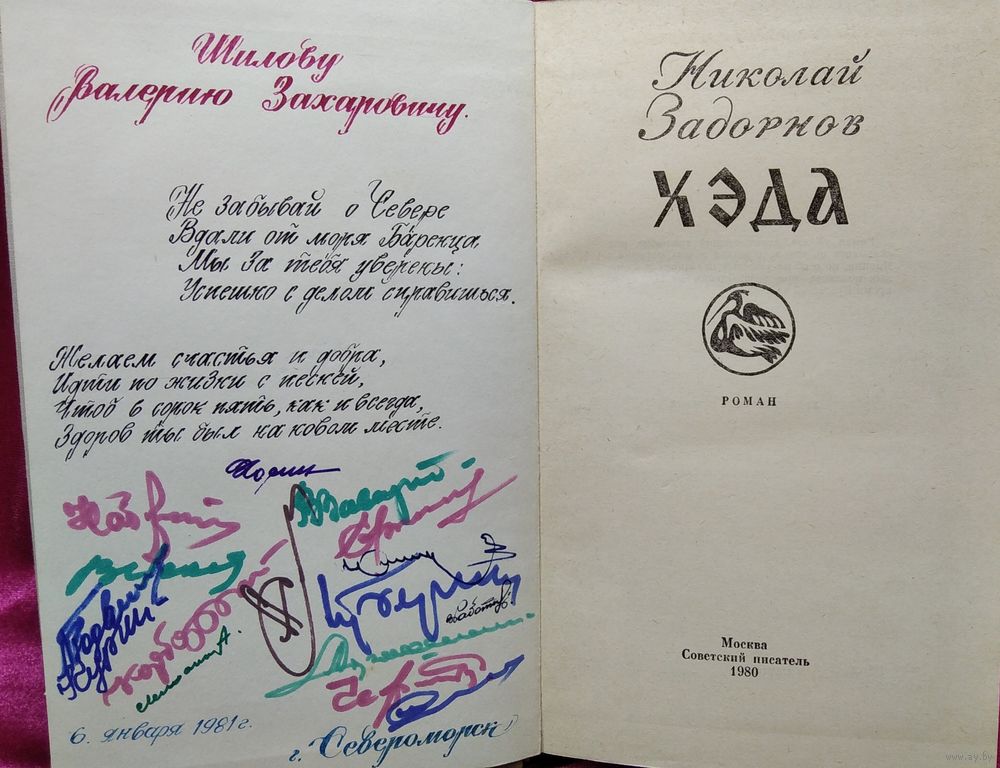 Шилову
Валерию Захаровичу.
Не забывай о Севере
Вдали от моря Баренца
Мы за тебя уверены:
Успешно с делом справишься.
Желаем счастья и добра,
Идти по жизни с песней,
Чтоб в сорок пять, как и всегда,
Здоров ты был на новом месте.
6. января 1981г.
г. Североморск
Николай
Задорнов
ХЭДА
РОМАН
Москва
Советский писатель
1980
www.ay.by